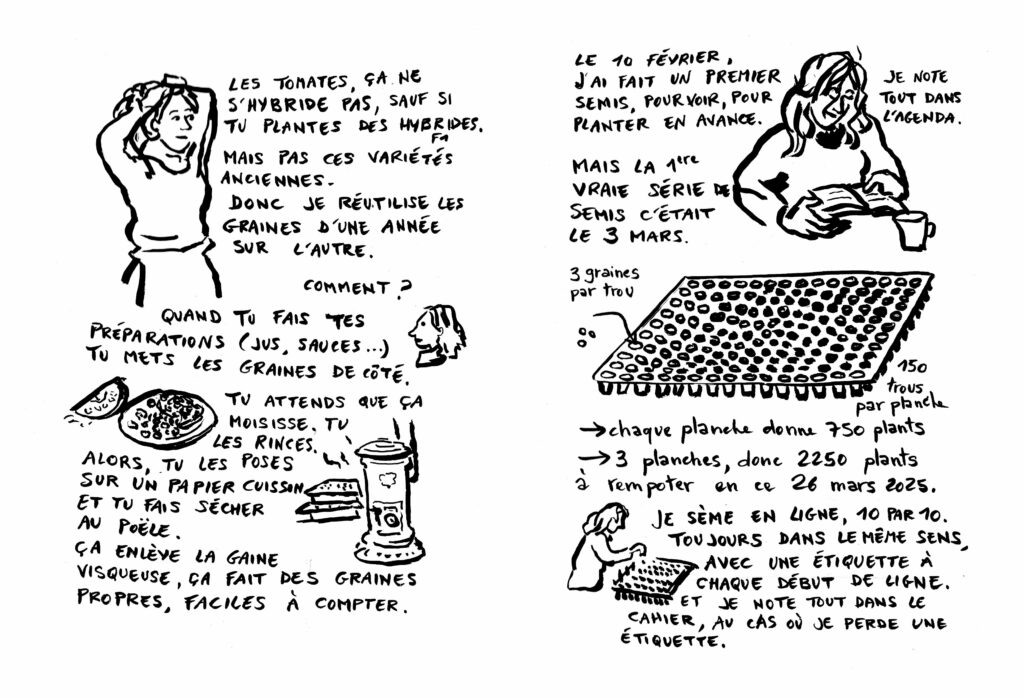 LES TOMATES, ÇA NE
S'HYBRIDE PAS, SAUF SI
TU PLANTES DES HYBRIDES.
F1
MAIS PAS CES VARIÉTÉS
ANCIENNES.
DONC JE RÉUTILISE LES
GRAINES D'UNE ANNÉE
SUR L'AUTRE.
COMMENT ?
QUAND TU FAIS TES
PRÉPARATIONS (JUS, SAUCES...)
TU METS LES GRAINES DE CÔTÉ.
TU ATTENDS QUE ÇA
MOISISSE. TU
LES RINCES.
ALORS, TU LES POSES
SUR UN PAPIER CUISSON
ET TU FAIS SÉCHER
AU POÊLE.
ÇA ENLÈVE LA GAINE
VISQUEUSE, ÇA FAIT DES GRAINES
PROPRES, FACILES À COMPTER.
LE 10 FÉVRIER,
J'AI FAIT UN PREMIER
SEMIS, POUR VOIR, POUR
PLANTER EN AVANCE.
JE NOTE
TOUT DANS
L'AGENDA.
MAIS LA 1ère
VRAIE SÉRIE DE
SEMIS C'ÉTAIT
LE 3 MARS.
3 graines
par trou
150
trous
par planche
→ chaque planche donne 750 plants
→ 3 planches, donc 2250 plants
à rempoter en ce 26 mars 2025.
JE SÈME EN LIGNE, 10 PAR 10.
TOUJOURS DANS LE MÊME SENS,
AVEC UNE ÉTIQUETTE À
CHAQUE DÉBUT DE LIGNE.
ET JE NOTE TOUT DANS LE
CAHIER, AU CAS OÙ JE PERDE UNE
ÉTIQUETTE.